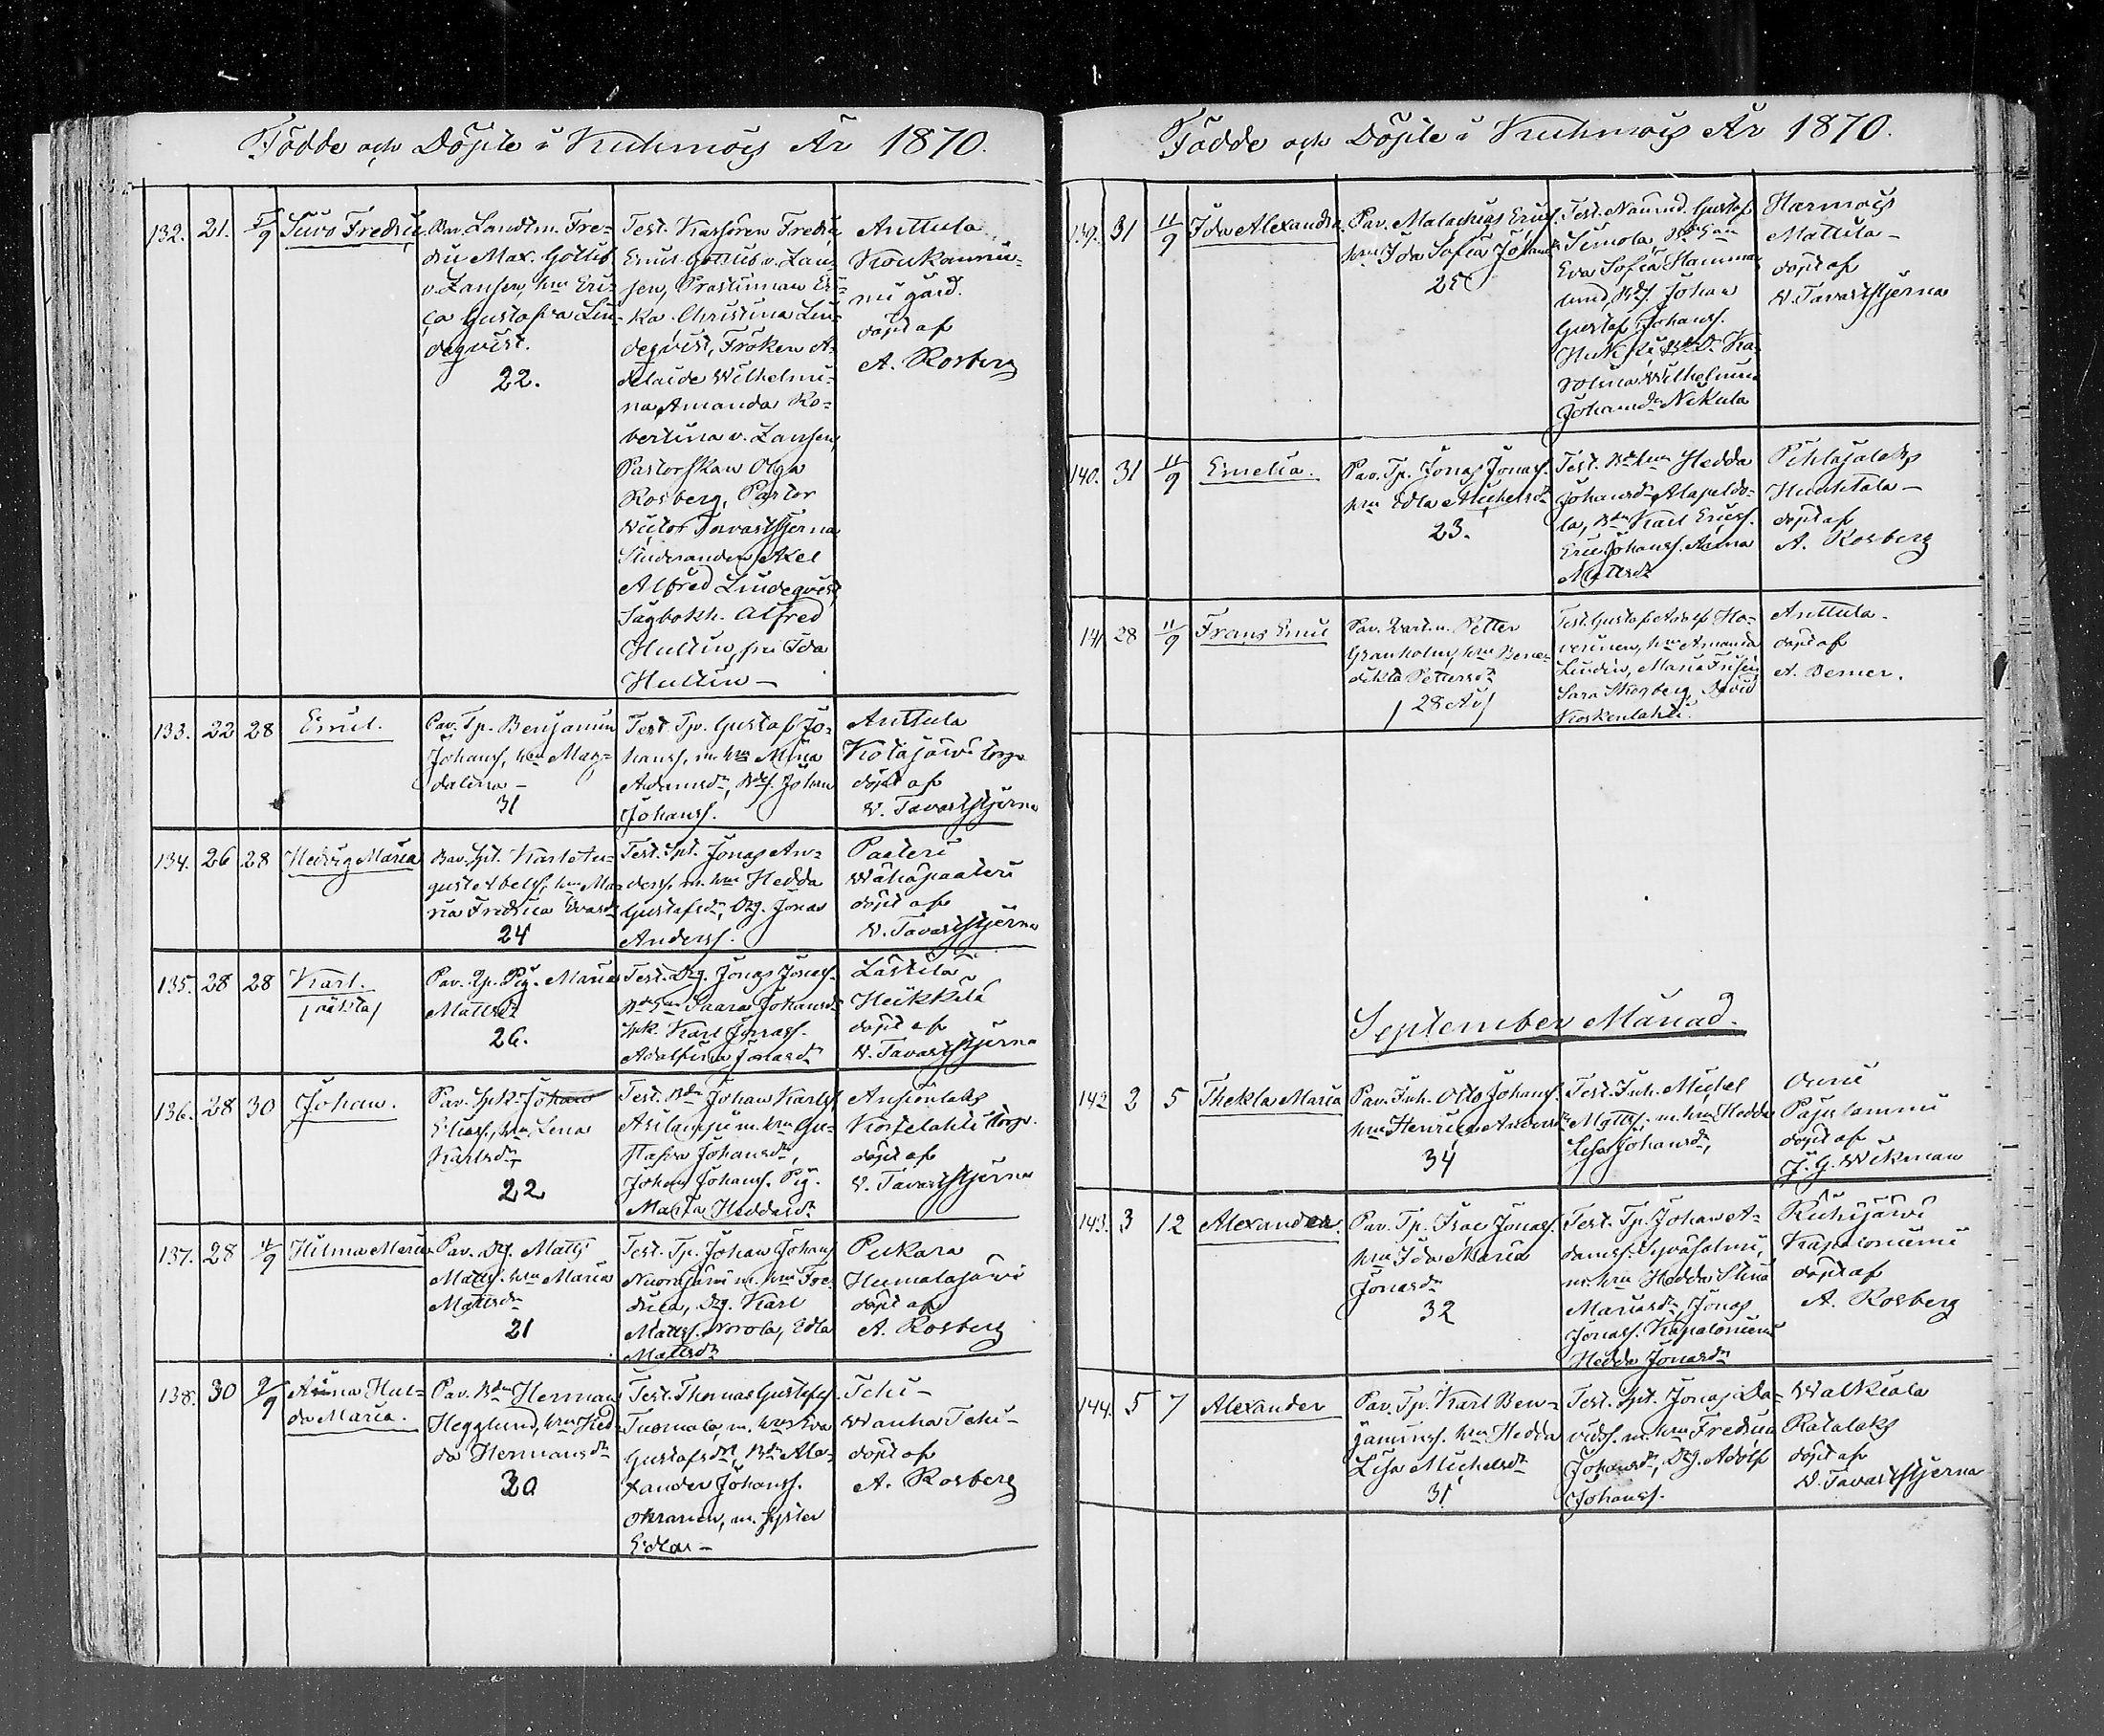 Födde och Döpte i Kuhmois År 1870.
132. 21. 5/9 Suvo Fredric
Par. Landtm. Fre-
dric Max. Gottlib
v. Zansen, hu Eri-
ca Gustafva Lin-
deqvist.
22.
Test. Kassören Fredric
Emil Gottlib v. Zan-
sen, Prostinnan Eri-
ka Christina Lin-
deqvist, Fröken A-
delaide Wilhelmi-
na Amanda Ro-
bertina v. Zansen,
Pastorskan Olga
Rosberg, Pastor
Victor Tavaststjerna
Studeranden Axel
Alfred Lindeqvist
Sagbokh. Alfred
Hultin, fru Ida
Hultin —
Anttula
gård.
döpt af
A. Rosberg
133. 22 28 Emil.
Par. Tp. Benjamin
Johanss, hu Mag-
dalena —
31
Test. Tp. Gustaf Jo-
hanss, m. hu Mina
Adamsdr, Johan
Johanss.
Anttula
Kotajärvi torp
döpt af
V. Tavaststjerna
134. 26 28 Hedvig Maria
Par. Spt. Karl Au-
gust Abelss, hu Ma-
ria Fredrica Evasdr
24
Test. Spt. Jonas An-
derss, m. hu Hedda
Gustafsdr, Dg. Jonas
Anderss.
Paateri
Wähäpaateri
döpt af
V. Tavaststjerna
135. 28 28 Karl.
/oäkta/
Par. Pig. Maria
Mattsdr
26.
Test. Dg. Jonas Jonass.
Saara Johansdr
Karl Jonass.
Adolfina Jonasdr
Lästilä
Heikkilä
döpt af
V. Tavaststjerna
136. 28 30 Johan.
Par. Johan
Eliass, hu Lena
Karlsdr,
22
Test. Johan Karlss
m. hu Gu-
stafva Johansdr,
Johan Johanss. Pig.
Maria Heddasdr
torp.
döpt af
V. Tavaststjerna
137. 28 11/9 Hilma Maria
Par. Dg. Matts
Mattss. hu Maria
Mattsdr
21
Test. Tp. Johan Johanss
m. hu Fre-
drica, Dg. Karl
Mattss. Edla
Mattsdr
Pukara
Humalajärvi
döpt af
A. Rosberg
138. 30 9/9 Anna Hul-
da Maria.
Par. Herman
Hegglund, hu Hed-
da Hermansdr
30
Test. Thomas Gustafss.
Tuomala, m. hu Eva
Gustafsdr, Ale-
xander Johanss.
m. syster
Edla —
Tehi —
Wanha Tehi —
döpt af
A. Rosberg
Födde och Döpte i Kuhmois År 1870.
139. 31 11/9 Ida Alexandra
Par. Malachias Ericss.
hu Ida Sofia Johansdr
25
Test. Gustaf
Simola,
Eva Sofia
Johan
Gustaf Johanss.
Ka-
rolina Wilhelmina
Johansdr Nikula
Harmois
Mattila —
döpt af
V. Tavaststjerna
140. 31 11/9 Emelia.
Par. Tp. Jonas Jonass.
hu Edla Michelsdr
23.
Test. Hedda
Johansdr
Karl Ericss.
Eric Johanss. Anna
Mattsdr
Pihlajalaks
Huhtala —
döpt af
A. Rosberg
141 28 11/9 Frans Emil
Par. Petter
Granholm, hu Bene-
dikta Pettersdr
/ 28 År /
Test. Gustaf Adolf Ho-
verinen, hu Amanda
Lindin, Maria
Sara Skogberg, David
Koskenlahti.
Anttula.
döpt af
A. Berner.
September Månad.
142 2 5 Thekla Maria
Par. Inh. Otto Johanss.
hu Henrica Andersdr
34
Test. Inh. Michel
Mattss. m. hu Hedda
Lisa Johansdr,
döpt af
J. G. Wikman
143. 3 12 Alexander.
Par. Tp. Isac Jonass.
hu Ida Maria
Jonasdr
32
Test. Tp. Johan A-
damss. Syväsalmi,
m. hu Hedda Stina
Mariasdr, Jonas
Jonass. Kapaloniemi
Hedda Jonasdr
Kuhijärvi
Kapaloniemi
döpt af
A. Rosberg
144. 5 7 Alexander
Par. Tp. Karl Ben-
jaminss. hu Hedda
Lisa Michelsdr
31
Test. Spt. Jonas Da-
vidss. m. hu Fredrica
Johansdr, Dg. Adolf
Johanss.
Walkiala
döpt af
V. Tavaststjerna